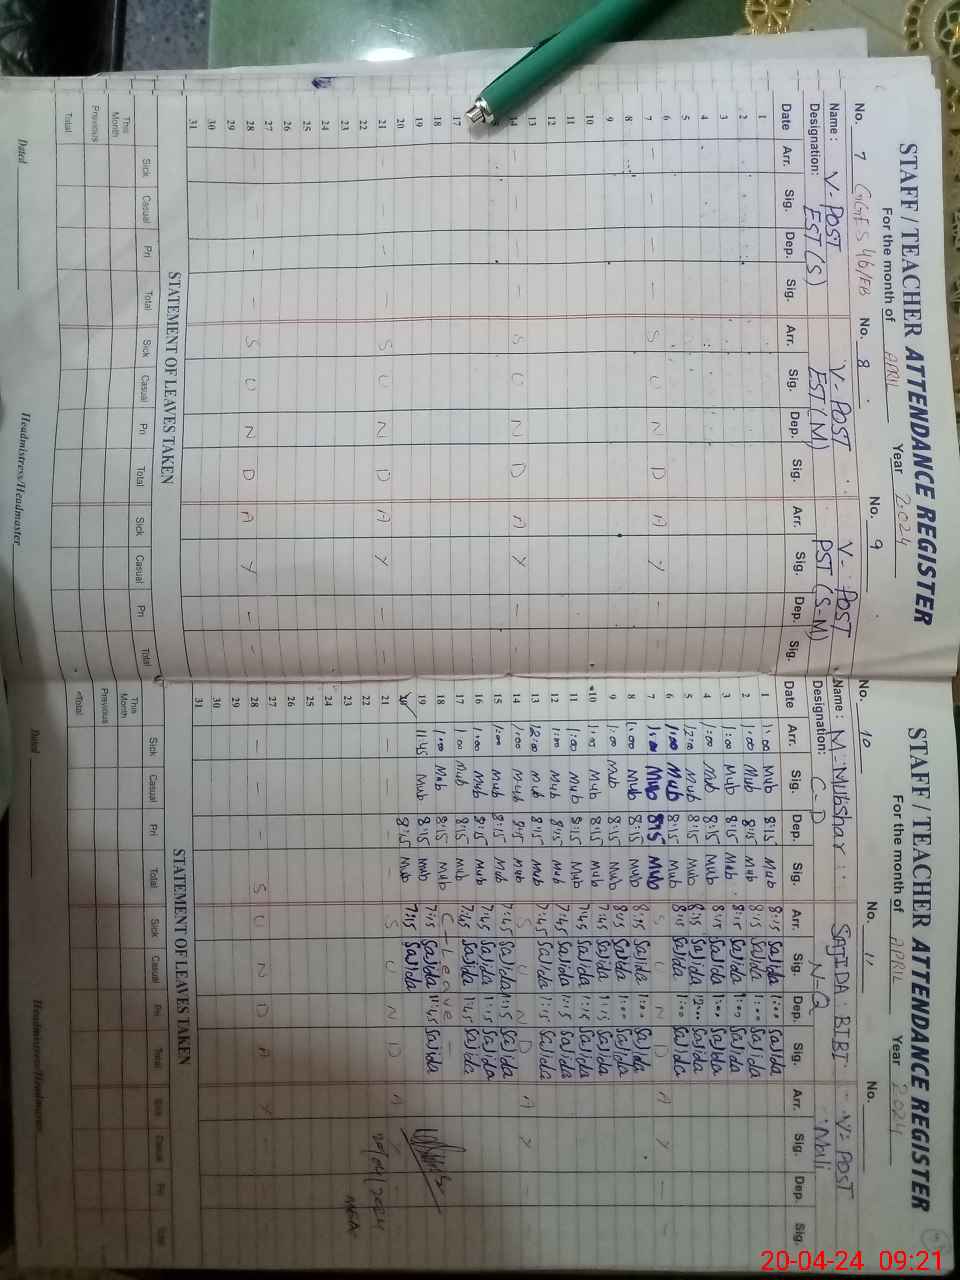 STAFF / TEACHER ATTENDANCE REGISTER
For the month of APRIL Year 2024
No. 7 GGES 46/EB No. 8 No. 9
Name: V-POST V-POST V-POST
Designation: EST(S) EST(M) PST(S-M)
Date Arr. Sig. Dep. Sig. Arr. Sig. Dep. Sig. Arr. Sig. Dep. Sig.
1
2
3
4
5
6
7 - - - - S U N D A Y - -
8
9
10
11
12
13
14 - - - - S U N D A Y - -
17
18
19
20
21 - - - - S U N D A Y - -
22
23
24
25
26
27
28 - - - - S U N D A Y - -
29
30
31
STATEMENT OF LEAVES TAKEN
Sick Casual Pri Total Sick Casual Pri Total Sick Casual Pri Total
This Month
Previous
Total
Dated Headmistress/Headmaster
STAFF / TEACHER ATTENDANCE REGISTER
For the month of APRIL Year 2024
No. 10 No. 11 No.
Name: M=Mubshar SAJIDA: BIBI V=POST
Designation: C-D N-Q Mali
Date Arr. Sig. Dep. Sig. Arr. Sig. Dep. Sig. Arr. Sig. Dep. Sig.
1 1:00 Mub 8:15 Mub 8:15 Sajida 1:00 Sajida
2 1:00 Mub 8:15 Mub 8:15 Sajida 1:00 Sajida
3 1:00 Mub 8:15 Mub 8:15 Sajida 1:00 Sajida
4 1:00 Mub 8:15 Mub 8:15 Sajida 1:00 Sajida
5 12:00 Mub 8:15 Mub 8:15 Sajida 12:00 Sajida
6 1:00 Mub 8:15 Mub 8:15 Sajida 1:00 Sajida
7 1:00 Mub 8:15 Mub S U N D A Y - -
8 1:00 Mub 8:15 Mub 8:15 Sajida 1:00 Sajida
9 1:00 Mub 8:15 Mub 8:15 Sajida 1:00 Sajida
10 1:00 Mub 8:15 Mub 7:45 Sajida 1:15 Sajida
11 1:00 Mub 8:15 Mub 7:45 Sajida 1:15 Sajida
12 1:00 Mub 8:15 Mub 7:45 Sajida 1:15 Sajida
13 12:00 Mub 8:15 Mub 7:45 Sajida 1:15 Sajida
14 1:00 Mub 8:15 Mub S U N D A Y - -
15 1:00 Mub 8:15 Mub 7:45 Sajida 1:15 Sajida
16 1:00 Mub 8:15 Mub 7:45 Sajida 1:15 Sajida
17 1:00 Mub 8:15 Mub 7:45 Sajida 1:45 Sajida
18 1:00 Mub 8:15 Mub C-Leave -
19 11:45 Mub 8:15 Mub 7:15 Sajida 11:45 Sajida
20 8:15 Mub 7:15 Sajida
21 - - - - S U N D A Y - -
20/04/2024
22
23
24
25
26
27
28 - - - - S U N D A Y - -
29
30
31
STATEMENT OF LEAVES TAKEN
Sick Casual Pri Total Sick Casual Pri Total Sick Casual Pri Total
This Month
Previous
Total
Dated Headmistress/Headmaster
20-04-24 09:21